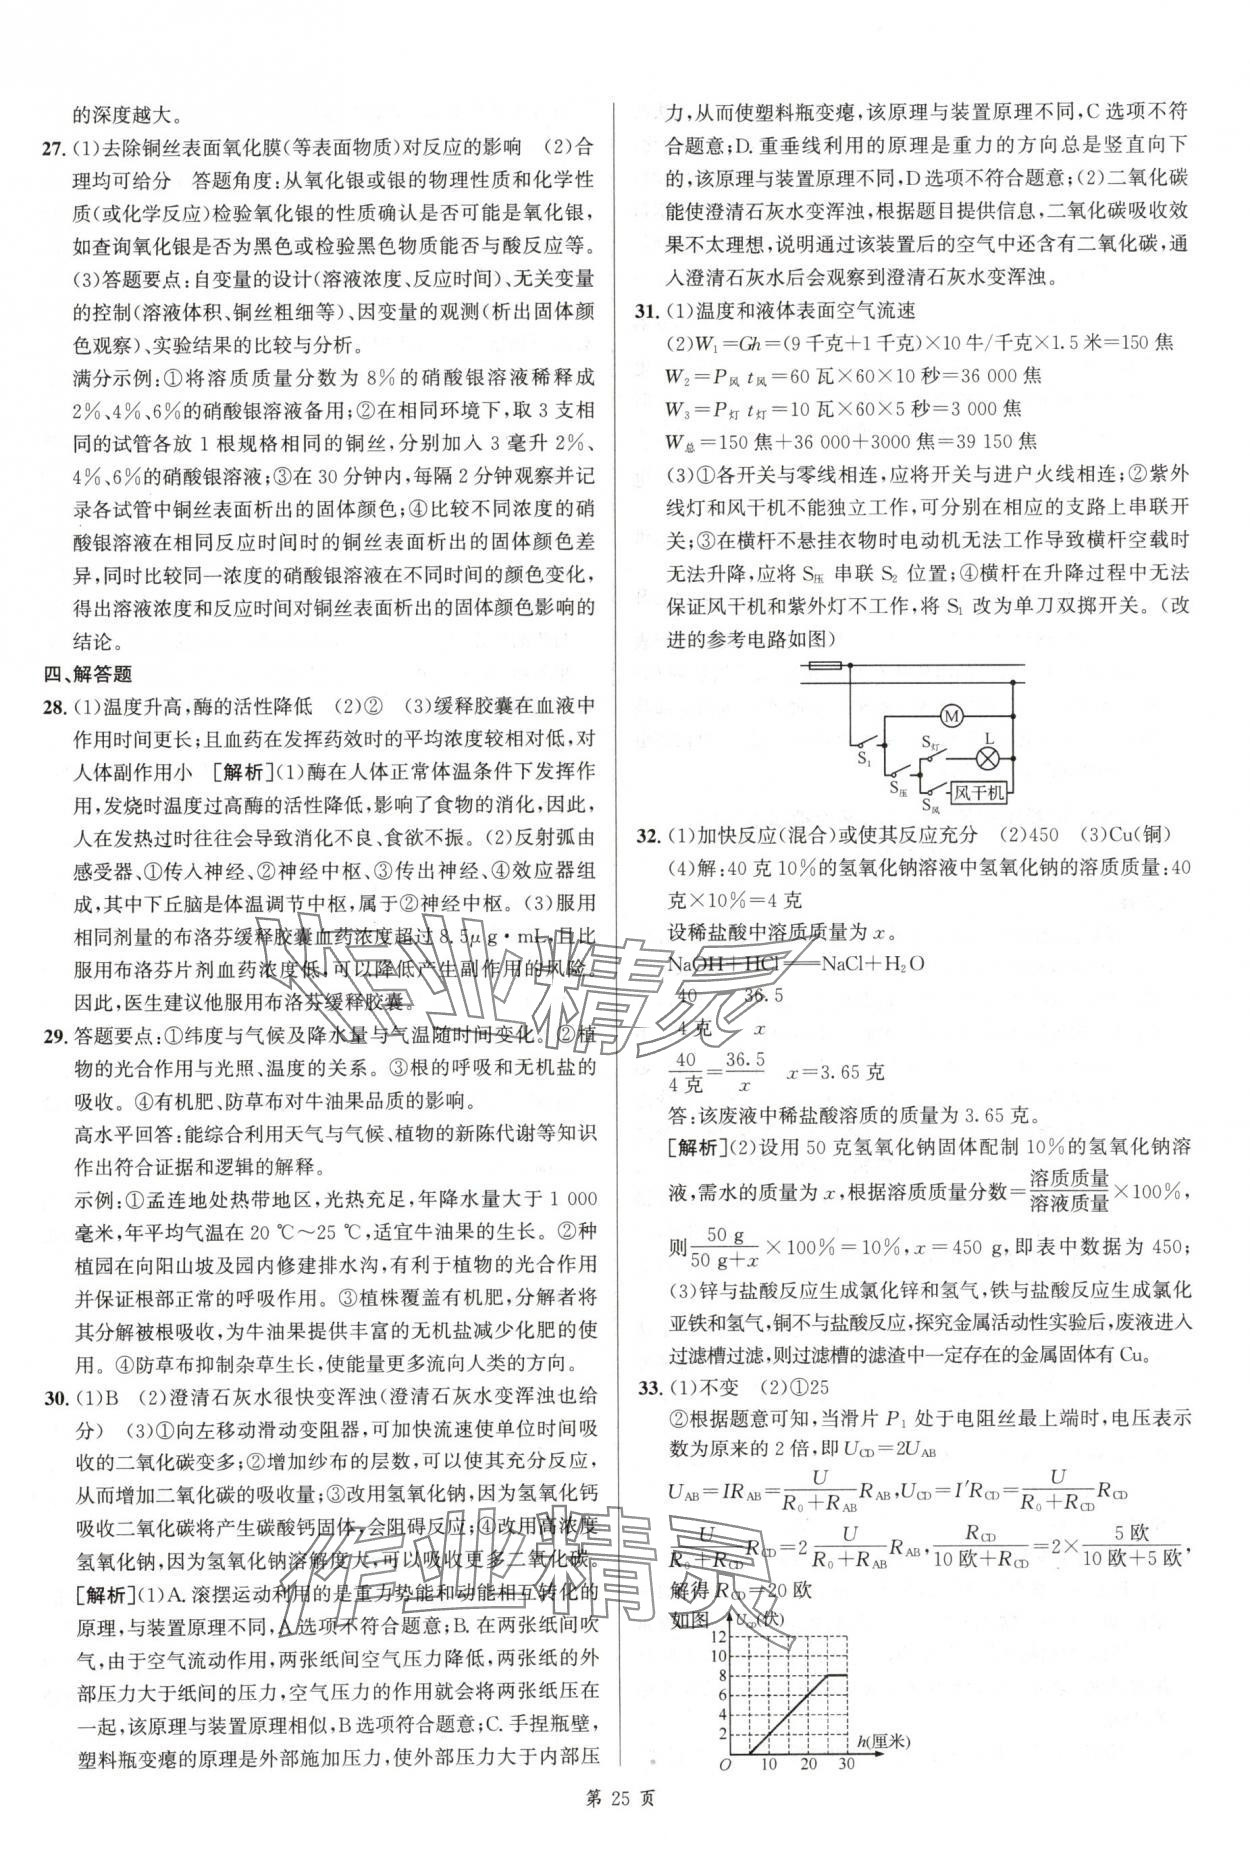 的深度越大。
27. (1)去除铜丝表面氧化膜(等表面物质)对反应的影响　(2)合
理均可给分　答题角度:从氧化银或银的物理性质和化学性
质(或化学反应)检验氧化银的性质确认是否可能是氧化银,
如查询氧化银是否为黑色或检验黑色物质能否与酸反应等。
(3)答题要点:自变量的设计(溶液浓度、反应时间)、无关变量
的控制(溶液体积、铜丝粗细等)、因变量的观测(析出固体颜
色观察)、实验结果的比较与分析。
满分示例:①将溶质质量分数为 8%的硝酸银溶液稀释成
2%、4%、6%的硝酸银溶液备用;②在相同环境下,取 3 支相
同的试管各放 1 根规格相同的铜丝,分别加入 3 毫升 2%、
4%、6%的硝酸银溶液;③在 30 分钟内,每隔 2 分钟观察并记
录各试管中铜丝表面析出的固体颜色;④比较不同浓度的硝
酸银溶液在相同反应时间时的铜丝表面析出的固体颜色差
异,同时比较同一浓度的硝酸银溶液在不同时间的颜色变化,
得出溶液浓度和反应时间对铜丝表面析出的固体颜色影响的
结论。
四、解答题
28. (1)温度升高,酶的活性降低　(2)②　(3)缓释胶囊在血液中
作用时间更长;且血药在发挥药效时的平均浓度较相对低,对
人体副作用小　[解析](1)酶在人体正常体温条件下发挥作
用,发烧时温度过高酶的活性降低,影响了食物的消化,因此,
人在发热过时往往会导致消化不良、食欲不振。(2)反射弧由
感受器、①传入神经、②神经中枢、③传出神经、④效应器组
成,其中下丘脑是体温调节中枢,属于②神经中枢。(3)服用
相同剂量的布洛芬缓释胶囊血药浓度超过 8.5μg·mL,且比
服用布洛芬片剂血药浓度低,可以降低产生副作用的风险。
因此,医生建议他服用布洛芬缓释胶囊。
29. 答题要点:①纬度与气候及降水量与气温随时间变化。②植
物的光合作用与光照、温度的关系。③根的呼吸和无机盐的
吸收。④有机肥、防草布对牛油果品质的影响。
高水平回答:能综合利用天气与气候、植物的新陈代谢等知识
作出符合证据和逻辑的解释。
示例:①孟连地处热带地区,光热充足,年降水量大于 1 000
毫米,年平均气温在 20 ℃～25 ℃,适宜牛油果的生长。②种
植园在向阳山坡及园内修建排水沟,有利于植物的光合作用
并保证根部正常的呼吸作用。③植株覆盖有机肥,分解者将
其分解被根吸收,为牛油果提供丰富的无机盐减少化肥的使
用。④防草布抑制杂草生长,使能量更多流向人类的方向。
30. (1)B　(2)澄清石灰水很快变浑浊(澄清石灰水变浑浊也给
分)　(3)①向左移动滑动变阻器,可加快流速使单位时间吸
收的二氧化碳变多;②增加纱布的层数,可使其充分反应,
从而增加二氧化碳的吸收量;③改用氢氧化钠,因为氢氧化钙
吸收二氧化碳将产生碳酸钙固体,会阻碍反应;④改用高浓度
氢氧化钠,因为氢氧化钠溶解度大,可以吸收更多二氧化碳。
[解析](1)A. 滚摆运动利用的是重力势能和动能相互转化的
原理,与装置原理不同,A选项不符合题意;B. 在两张纸间吹
气,由于空气流动作用,两张纸间空气压力降低,两张纸的外
部压力大于纸间的压力,空气压力的作用就会将两张纸压在
一起,该原理与装置原理相似,B选项符合题意;C. 手捏瓶壁,
塑料瓶变瘪的原理是外部施加压力,使外部压力大于内部压
力,从而使塑料瓶变瘪,该原理与装置原理不同,C选项不符
合题意;D. 重垂线利用的原理是重力的方向总是竖直向下
的,该原理与装置原理不同,D选项不符合题意;(2)二氧化碳
能使澄清石灰水变浑浊,根据题目提供信息,二氧化碳吸收效
果不太理想,说明通过该装置后的空气中还含有二氧化碳,通
入澄清石灰水后会观察到澄清石灰水变浑浊。
31. (1)温度和液体表面空气流速
(2)W₁=Gh=(9千克+1千克)×10牛/千克×1.5米=150焦
W₂=P风 t风=60瓦×60×10秒=36 000焦
W₃=P灯 t灯=10瓦×60×5秒=3 000焦
W总=150焦+36 000+3000焦=39 150焦
(3)①各开关与零线相连,应将开关与进户火线相连;②紫外
线灯和风干机不能独立工作,可分别在相应的支路上串联开
关;③在横杆不悬挂衣物时电动机无法工作导致横杆空载时
无法升降,应将 S压 串联 S₂ 位置;④横杆在升降过程中无法
保证风干机和紫外灯不工作,将 S₁ 改为单刀双掷开关。(改
进的参考电路如图)
M
S灯 L
S₁
S压
S风 风干机
32. (1)加快反应(混合)或使其反应充分　(2)450　(3)Cu(铜)
(4)解:40克10%的氢氧化钠溶液中氢氧化钠的溶质质量:40
克×10%=4克
设稀盐酸中溶质质量为 x。
NaOH+HCl══NaCl+H₂O
40　36.5
4克　x
40/4克=36.5/x　x=3.65克
答:该废液中稀盐酸溶质的质量为 3.65克。
[解析](2)设用50克氢氧化钠固体配制10%的氢氧化钠溶
液,需水的质量为 x,根据溶质质量分数=溶质质量/溶液质量×100%,
则50 g/(50 g+x)×100%=10%,x=450 g,即表中数据为450;
(3)锌与盐酸反应生成氯化锌和氢气,铁与盐酸反应生成氯化
亚铁和氢气,铜不与盐酸反应,探究金属活动性实验后,废液进入
过滤槽过滤,则过滤槽的滤渣中一定存在的金属固体有Cu。
33. (1)不变　(2)①25
②根据题意可知,当滑片 P₁ 处于电阻丝最上端时,电压表示
数为原来的2倍,即 U_CD=2U_AB
U_AB=IR_AB=U/(R₀+R_AB) R_AB,U_CD=I′R_CD=U/(R₀+R_CD) R_CD
U/(R₀+R_CD) R_CD=2 U/(R₀+R_AB) R_AB,R_CD/(10欧+R_CD)=2×5欧/(10欧+5欧),
解得 R_CD=20欧
如图
U_CD(伏)
12
10
8
6
4
2
O 10 20 30 h(厘米)
第 25 页
作业精灵
作业精灵